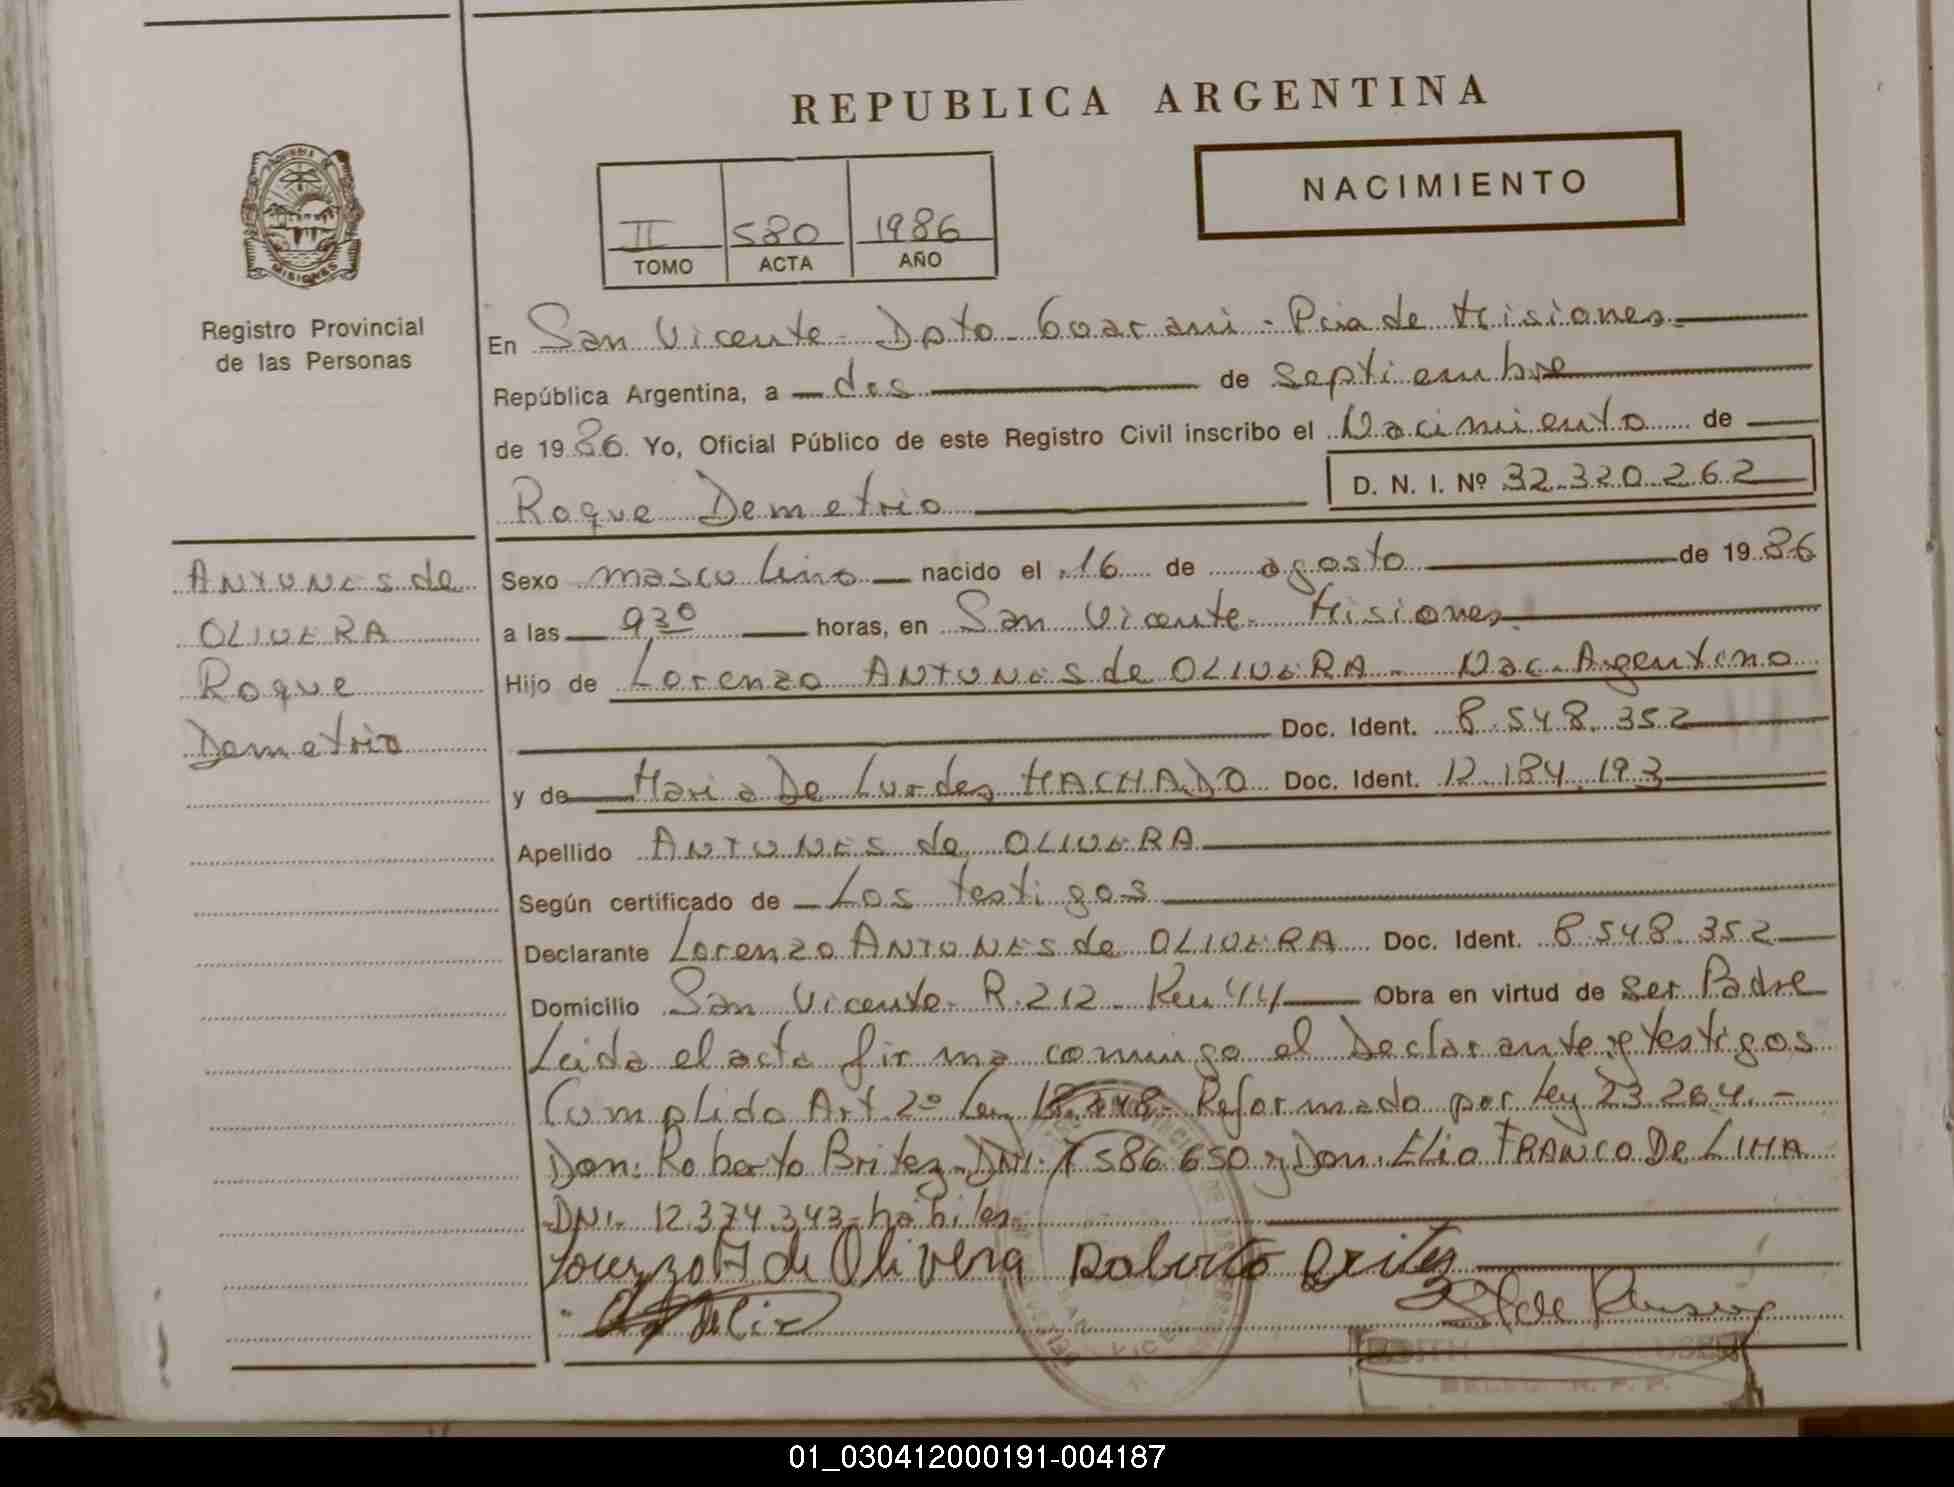 REPUBLICA ARGENTINA
NACIMIENTO
II 580 1986
TOMO ACTA AÑO
PROVINCIA DE
MISIONES
Registro Provincial
de las Personas
En San Vicente - Dpto - Guarani - Pcia de Misiones.
República Argentina, a dos de septiembre
de 1986 Yo, Oficial Público de este Registro Civil inscribo el Nacimiento de
D. N. I. Nº 32.320.262
Roque Demetrio
ANTUNES de
OLIVERA
Roque
Demetrio
Sexo masculino nacido el 16 de agosto de 1986
a las 930 horas, en San Vicente - Misiones.
Hijo de Lorenzo ANTUNES de OLIVERA - Nac. Argentino
Doc. Ident. 8.548.352
y de Maria De Lurdes MACHADO Doc. Ident. 12.184.193
Apellido ANTUNES de OLIVERA
Según certificado de Los testigos
Declarante Lorenzo ANTUNES de OLIVERA Doc. Ident. 8.548.352
Domicilio San Vicente - R. 212 - Km 44 Obra en virtud de ser Padre
Leida el acta firma conmigo el Declarante y testigos
Cumplido Art 2º Ley 18.248 - Reformado por Ley 23.264. -
Don: Roberto Britez - DNI. 7.586.650 y Don: Elio FRANCO DE LIMA
DNI. 12.374.343 - habiles.
Lorenzo A de Olivera Roberto Britez
01_030412000191-004187